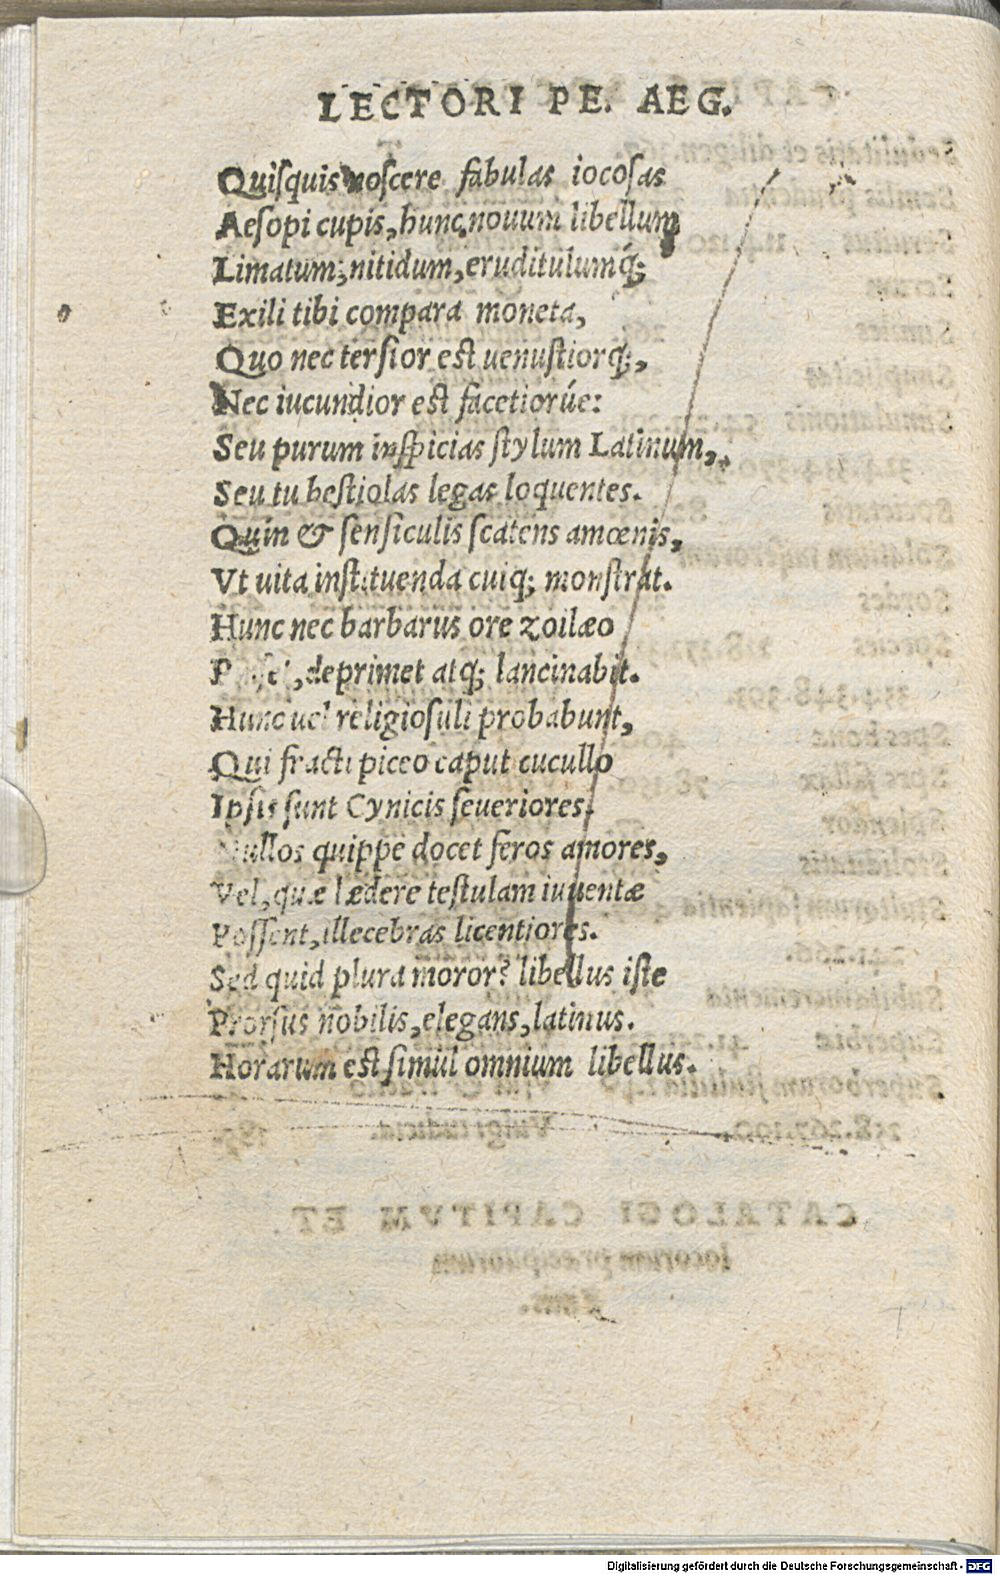 LECTORI PE. AEG.
Quiſquis noſcere fabulas iocoſas
Aeſopi cupis, hunc nouum libellum
Limatum, nitidum, eruditulumq́;
Exili tibi compara moneta,
Quo nec terſior eſt uenuſtiorq́;,
Nec iucundior eſt facetiorúe:
Seu purum inſpicias ſtylum Latinum,
Seu tu beſtiolas legas loquentes.
Quin & ſenſiculis ſcatens amœnis,
Vt uita inſtituenda cuiq; monſtrat.
Hunc nec barbarus ore zoilæo
deprimet atq; lancinabit.
Hunc uel religioſuli probabunt,
Qui fracti piceo caput cucullo
Ipſis ſunt Cynicis ſeueriores.
Nullos quippe docet feros amores,
Vel, quæ lædere teſtulam iuuentæ
Poſſent, illecebras licentiores.
Sed quid plura moror? libellus iſte
Prorſus nobilis, elegans, latinus.
Horarum eſt ſimul omnium libellus.
Digitalisierung gefördert durch die Deutsche Forschungsgemeinschaft - DFG